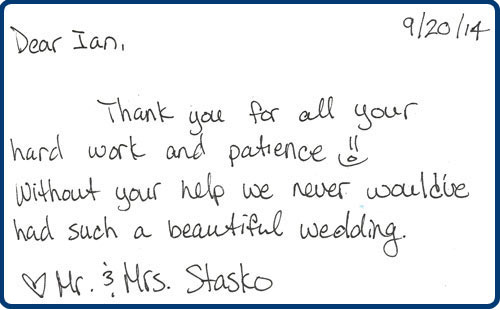 9/20/14
Dear Ian,
Thank you for all your
hard work and patience
Without your help we never would've
had such a beautiful wedding.
♡ Mr. & Mrs. Stasko